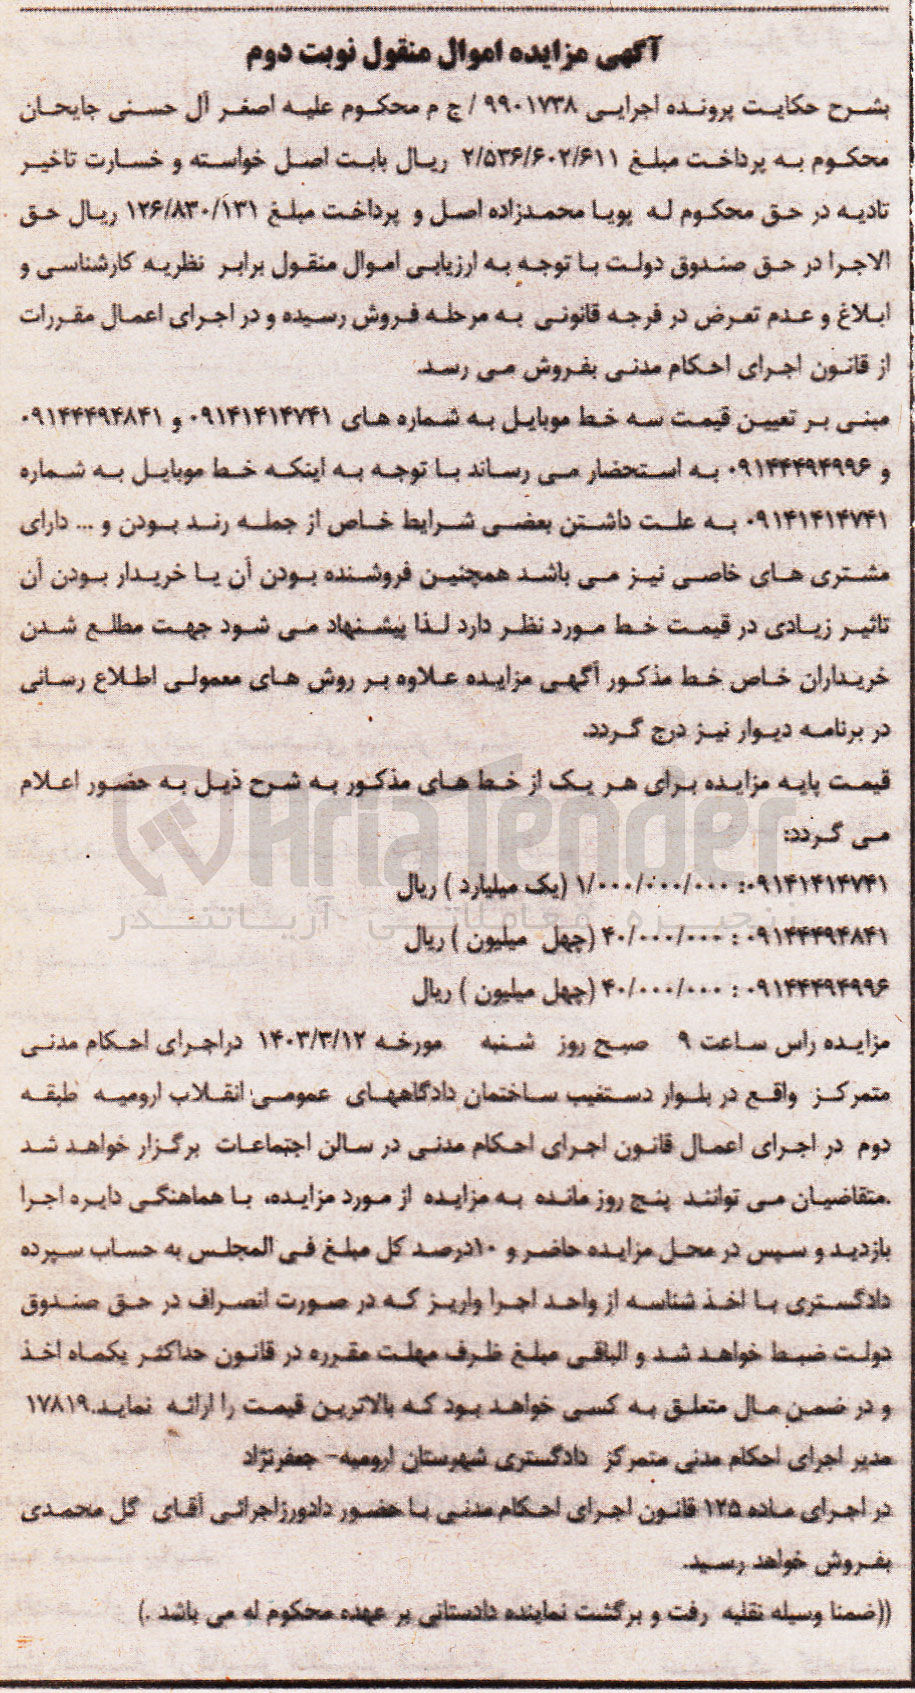 آگهی مزایده اموال منقول نوبت دوم
بشرح حکایت پرونده اجرایی ۹۹۰۱۷۳۸ / ج م محکوم علیه اصغر آل حسنی جایحان
محکوم به پرداخت مبلغ ۲/۵۳۶/۶۰۲/۶۱۱ ریال بابت اصل خواسته و خسارت تاخیر
تادیه در حق محکوم له پویا محمدزاده اصل و پرداخت مبلغ ۱۲۶/۸۳۰/۱۳۱ ریال حق
الاجرا در حق صندوق دولت با توجه به ارزیابی اموال منقول برابر نظریه کارشناسی و
ابلاغ و عدم تعرض در فرجه قانونی به مرحله فروش رسیده و در اجرای اعمال مقررات
از قانون اجرای احکام مدنی بفروش می رسد.
مبنی بر تعیین قیمت سه خط موبایل به شماره های ۰۹۱۴۱۴۱۴۷۴۱ و ۰۹۱۴۴۴۹۴۸۴۱
و ۰۹۱۴۴۴۹۴۹۹۶ به استحضار می رساند با توجه به اینکه خط موبایل به شماره
۰۹۱۴۱۴۱۴۷۴۱ به علت داشتن بعضی شرایط خاص از جمله رند بودن و ... دارای
مشتری های خاصی نیز می باشد همچنین فروشنده بودن آن یا خریدار بودن آن
تاثیر زیادی در قیمت خط مورد نظر دارد لذا پیشنهاد می شود جهت مطلع شدن
خریداران خاص خط مذکور آگهی مزایده علاوه بر روش های معمولی اطلاع رسانی
در برنامه دیوار نیز درج گردد.
قیمت پایه مزایده برای هر یک از خط های مذکور به شرح ذیل به حضور اعلام
می گردد:
AriaTender
۰۹۱۴۱۴۱۴۷۴۱: ۱/۰۰۰/۰۰۰/۰۰۰ (یک میلیارد ) ریال
زنجیره معاملاتی آریاتندر
۰۹۱۴۴۴۹۴۸۴۱ : ۴۰/۰۰۰/۰۰۰ (چهل میلیون ) ریال
۰۹۱۴۴۴۹۴۹۹۶ : ۴۰/۰۰۰/۰۰۰ (چهل میلیون ) ریال
مزایده راس ساعت ۹ صبح روز شنبه مورخه ۱۴۰۳/۳/۱۲ دراجرای احکام مدنی
متمرکز واقع در بلوار دستغیب ساختمان دادگاههای عمومی انقلاب ارومیه طبقه
دوم در اجرای اعمال قانون اجرای احکام مدنی در سالن اجتماعات برگزار خواهد شد
.متقاضیان می توانند پنج روز مانده به مزایده از مورد مزایده، با هماهنگی دایره اجرا
بازدید و سپس در محل مزایده حاضر و ۱۰درصد کل مبلغ فی المجلس به حساب سپرده
دادگستری با اخذ شناسه از واحد اجرا واریز که در صورت انصراف در حق صندوق
دولت ضبط خواهد شد و الباقی مبلغ ظرف مهلت مقرره در قانون حداکثر یکماه اخذ
و در ضمن مال متعلق به کسی خواهد بود که بالاترین قیمت را ارائه نماید.۱۷۸۱۹
مدیر اجرای احکام مدنی متمرکز دادگستری شهرستان ارومیه- جعفرنژاد
در اجرای ماده ۱۲۵ قانون اجرای احکام مدنی با حضور دادورزاجرائی آقای گل محمدی
بفروش خواهد رسید.
((ضمنا وسیله نقلیه رفت و برگشت نماینده دادستانی بر عهده محکوم له می باشد .)